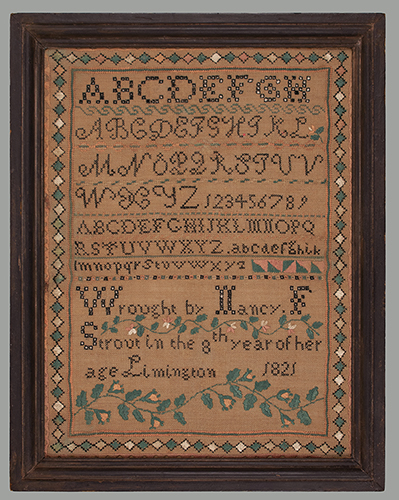 ABCDEFGH
ABCDEFGHIKL
MNOPQRSTUV
WXYZ 123456789
ABCDEFGHIJKLMNOPQ
RSTUVWXYZ.abcdefghik
lmnopqrstuvwxyz
Wrought by Nancy. F
Strout in the 8th year of her
age Limington 1821